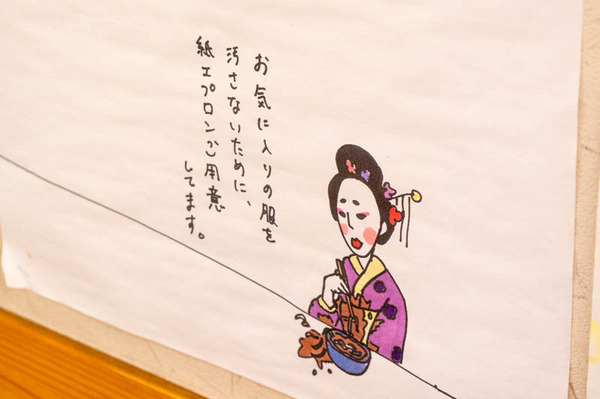 お気に入りの服を
汚さないために、
紙エプロンご用意
してます。